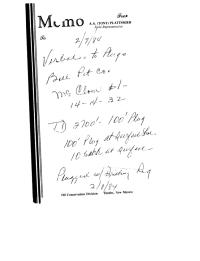 Memo
From
A.A. (TONY) PLATTSMIER
Field Representative
To
2/7/84
Verbal - to Plug
Bell Pet Co.
#1-
14-14-32-
TD 2700'- 100' Plug
100' Plug at Surface
10 Sack at Surface
Plugged w/ Drilling Rig
2/8/84
Oil Conservation Division
, New Mexico